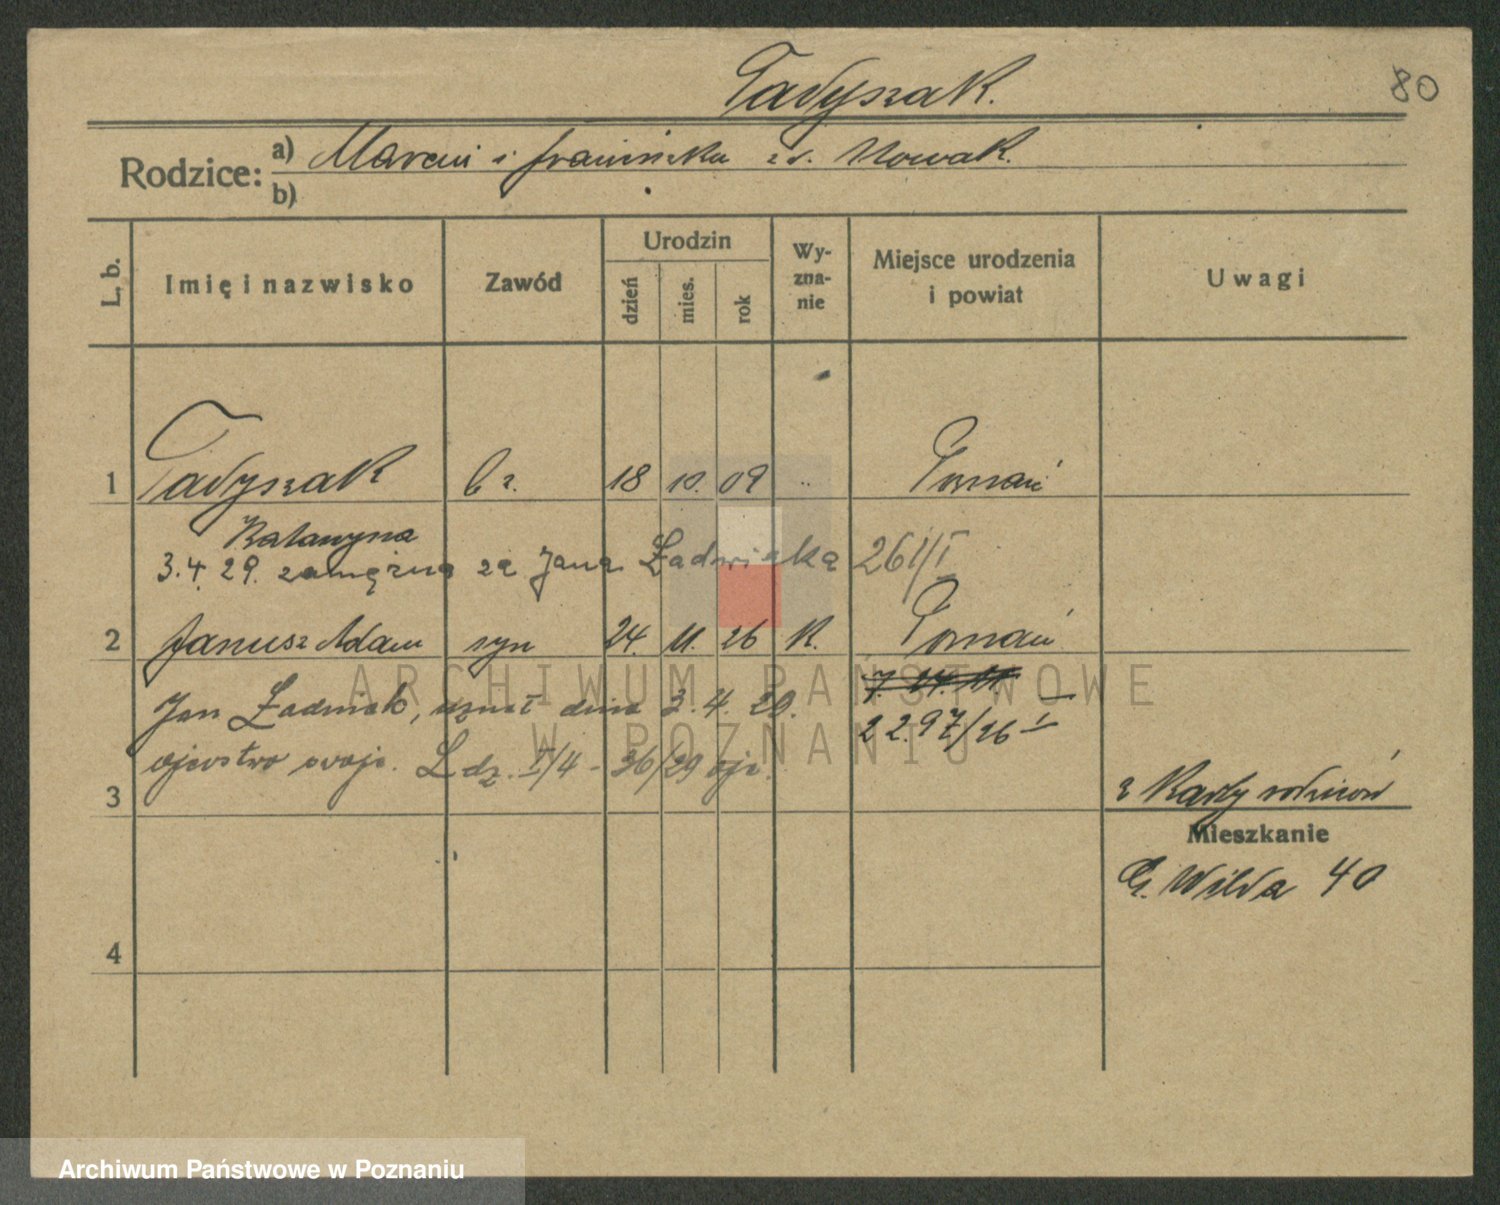 Tadyszak.
80
Rodzice: a) Marcin i Franciszka z d. Nowak.
b)
L. b. Imię i nazwisko Zawód Urodzin dzień mies. rok Wy-zna-nie Miejsce urodzenia i powiat Uwagi
1 Tadyszak bz. 18 10. 09 " Poznań
Katarzyna
3.4. 29. zamężna za Jana Ładwiaka 261/I
2 Janusz Adam syn 24. 11. 26 K. Poznań
Jan Ładwiak, uznał dnia 3.4.29.
2297/26 I
ojcostwo swoje. L dz. I/4 - 36/29 ojc.
3
z Karty rodziców
Mieszkanie
G. Wilda 40
4
ARCHIWUM PAŃSTWOWE
W POZNANIU
Archiwum Państwowe w Poznaniu